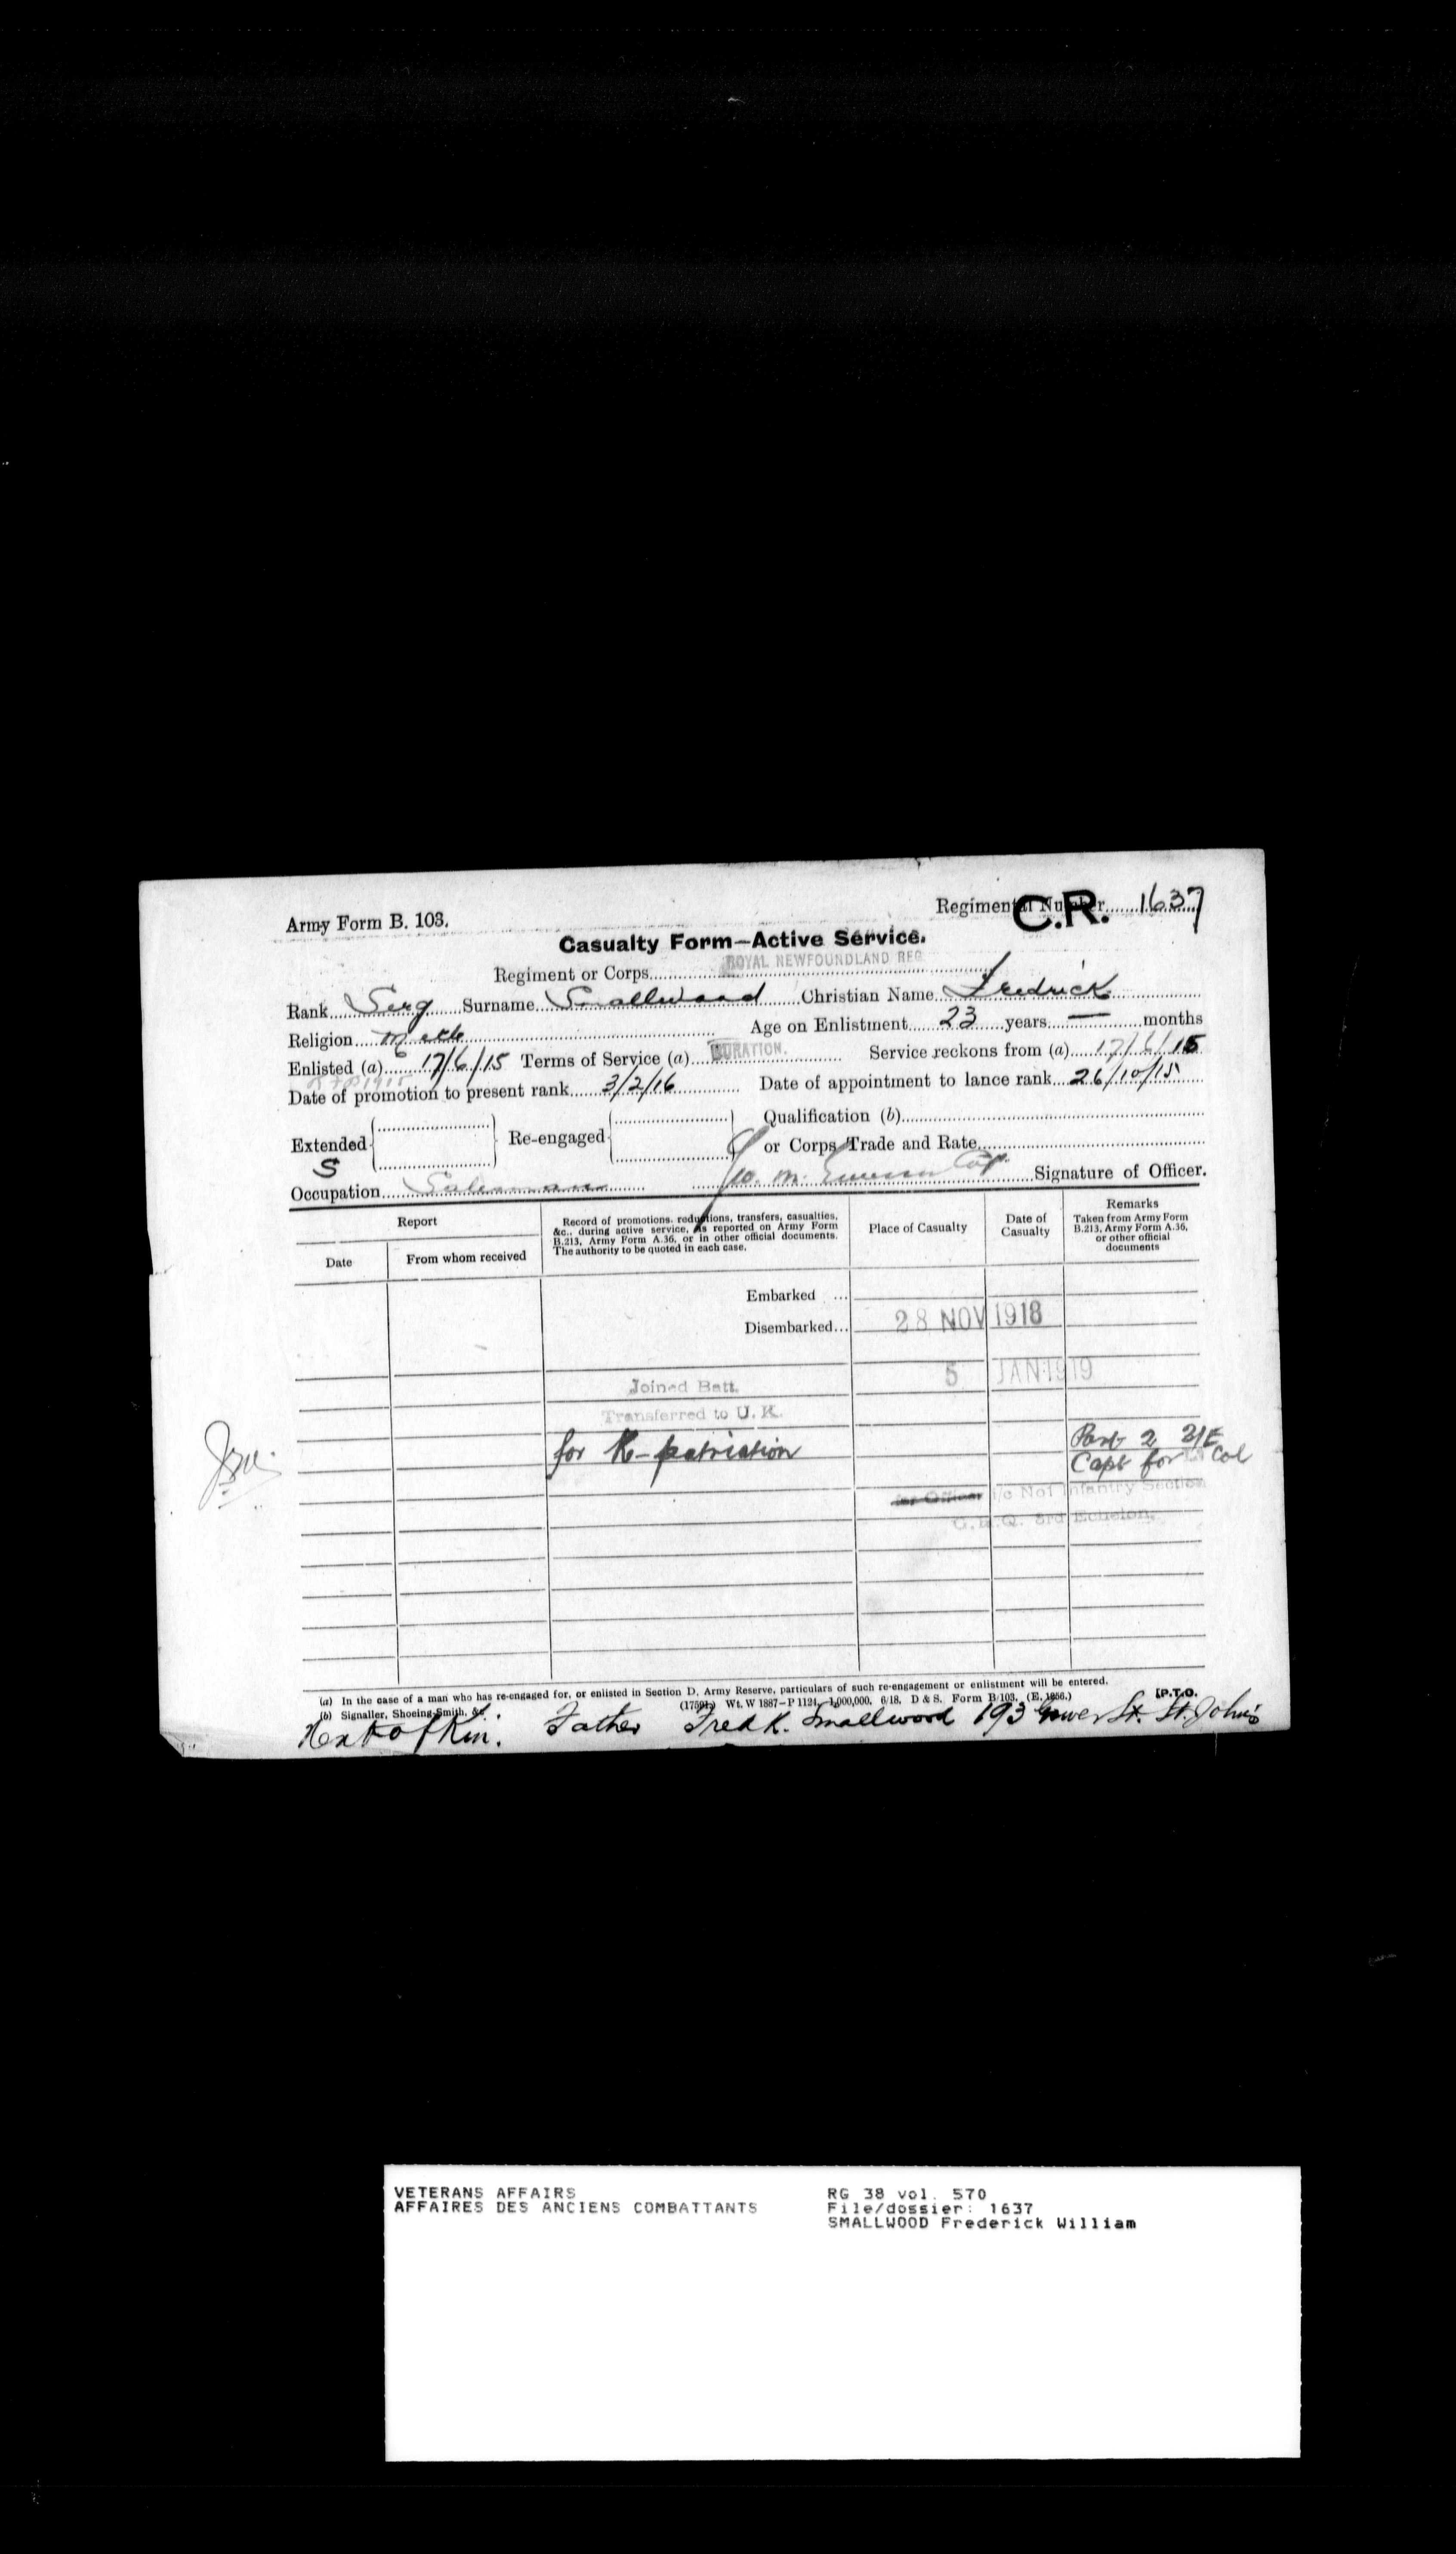 Army Form B. 103.
Regimental Number 1637
C.R.
Casualty Form—Active Service.
Regiment or Corps ROYAL NEWFOUNDLAND REG
Rank Serg Surname Smallwood Christian Name Fredrick
Religion Meth Age on Enlistment 23 years — months
Enlisted (a) 17/6/15 Terms of Service (a) DURATION. Service reckons from (a) 17/6/15
Date of promotion to present rank 3/2/16 Date of appointment to lance rank 26/10/15
Extended Re-engaged Qualification (b)
or Corps Trade and Rate
S
Occupation Salesman Capt. Signature of Officer.
Report
Date
From whom received
Record of promotions, reductions, transfers, casualties, &c., during active service, as reported on Army Form B.213, Army Form A.36, or in other official documents. The authority to be quoted in each case.
Place of Casualty
Date of Casualty
Remarks
Taken from Army Form B.213, Army Form A.36, or other official documents
Embarked ...
Disembarked... 28 NOV 1918
Joined Batt. 5 JAN 1919
Transferred to U.K.
for Re-patriation
Part 2
Capt for Col
for Officer i/c No1 Infantry Section
G.H.Q. 3rd Echelon.
(a) In the case of a man who has re-engaged for, or enlisted in Section D, Army Reserve, particulars of such re-engagement or enlistment will be entered.
(b) Signaller, Shoeing-Smith, &c. (17591) Wt. W 1887—P 1121 1,000,000. 6/18. D & S. Form B/103. (E. 1256.) [P.T.O.
Next of Kin. Father Fredk. Smallwood 193 Gower St. St. John's
VETERANS AFFAIRS
AFFAIRES DES ANCIENS COMBATTANTS
RG 38 vol. 570
File/dossier: 1637
SMALLWOOD Frederick William